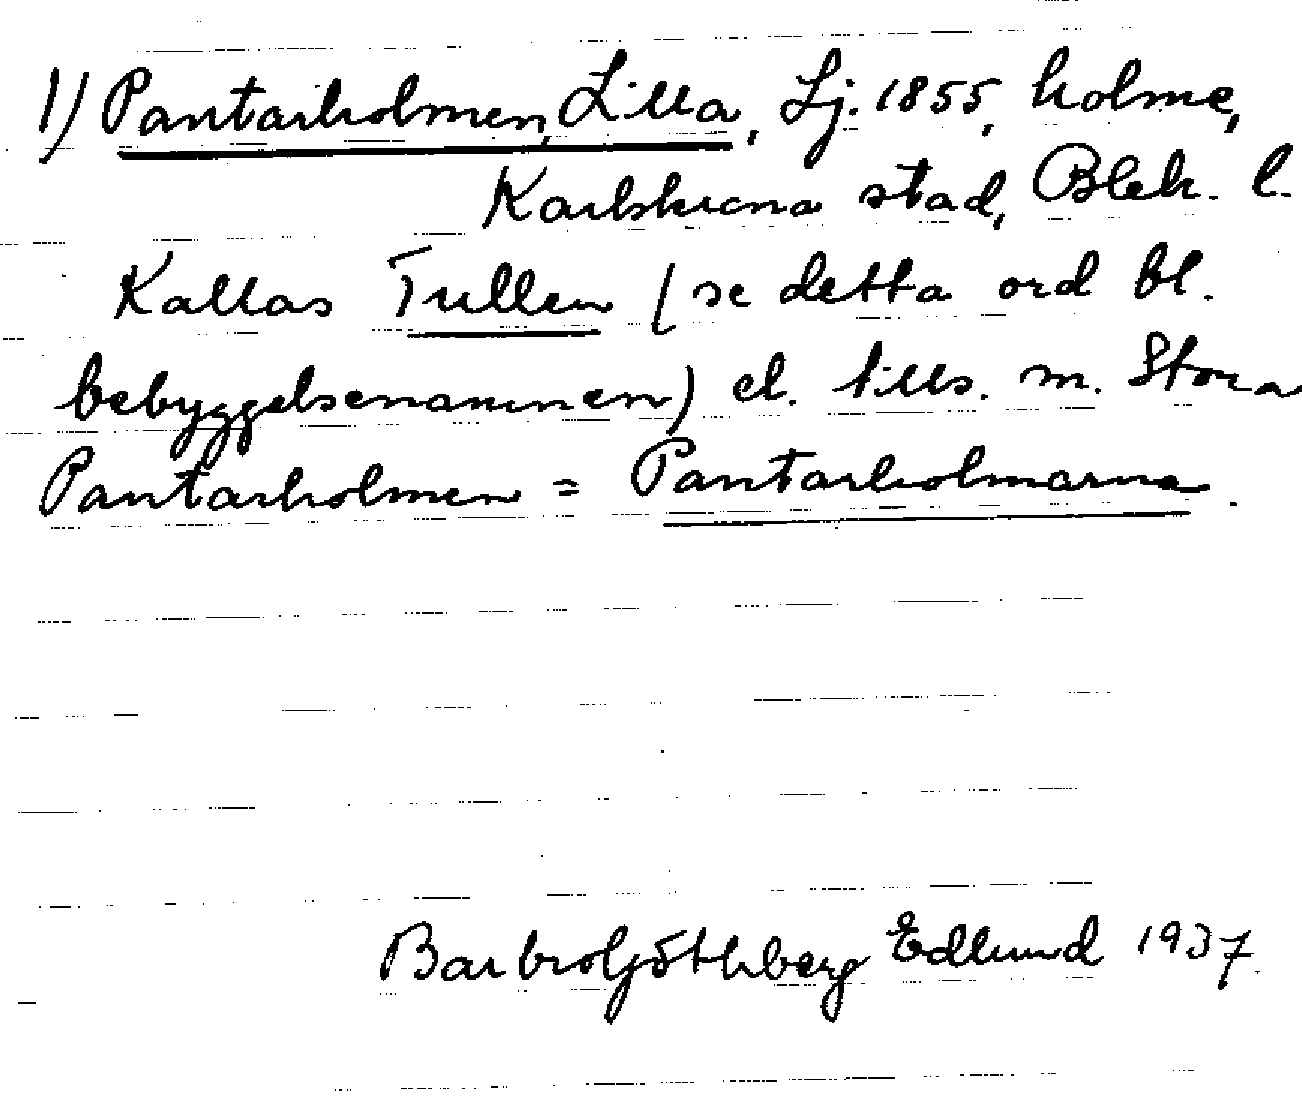 1) Pantarholmen, Lilla, Lj. 1855, holme,
Karlskrona stad, Blek. l.
Kallas Tullen (se detta ord bl.
bebyggelsenamnen) el. tills. m. Stora
Pantarholmen = Pantarholmarna.
Barbro Göthberg Edlund 1937